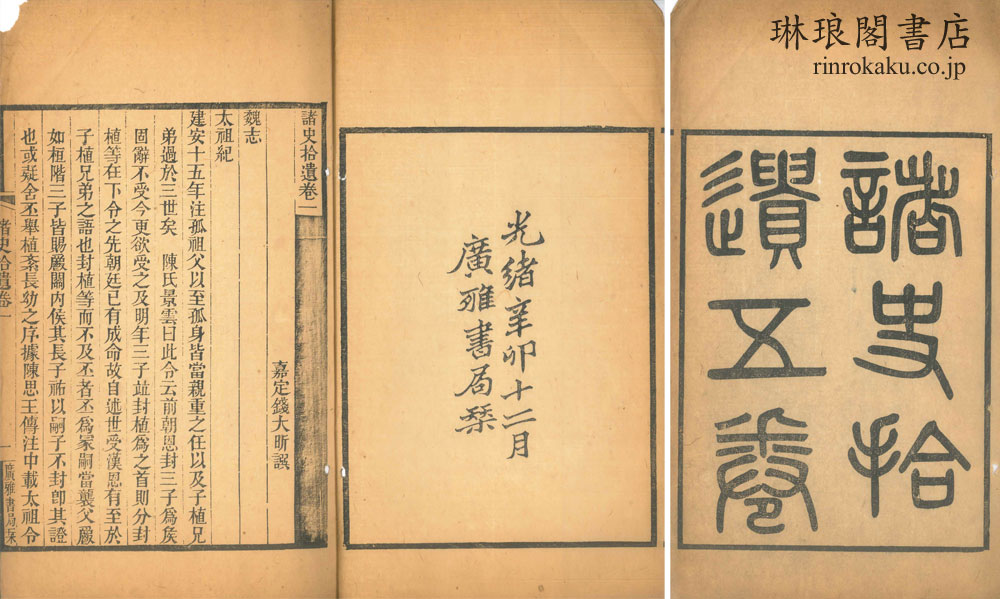 琳琅閣書店
rinrokaku.co.jp
諸史拾
遺五卷
光緒辛卯十二月
廣雅書局栞
諸史拾遺卷一
嘉定錢大昕譔
魏志
太祖紀
建安十五年注孤祖父以至孤身皆當親重之任以及子植兄
弟過於三世矣　陳氏景雲曰此令云前朝恩封三子爲矦
固辭不受今更欲受之及明年三子竝封植爲之首則分封
植等在下令之先朝廷已有成命故自述世受漢恩有至於
子植兄弟之語也封植等而不及丕者丕爲冡嗣當襲父爵
如桓階三子皆賜爵關內侯其長子祐以嗣子不封卽其證
也或疑舍丕舉植紊長幼之序據陳思王傳注中載太祖令
諸史拾遺卷一
一
廣雅書局栞